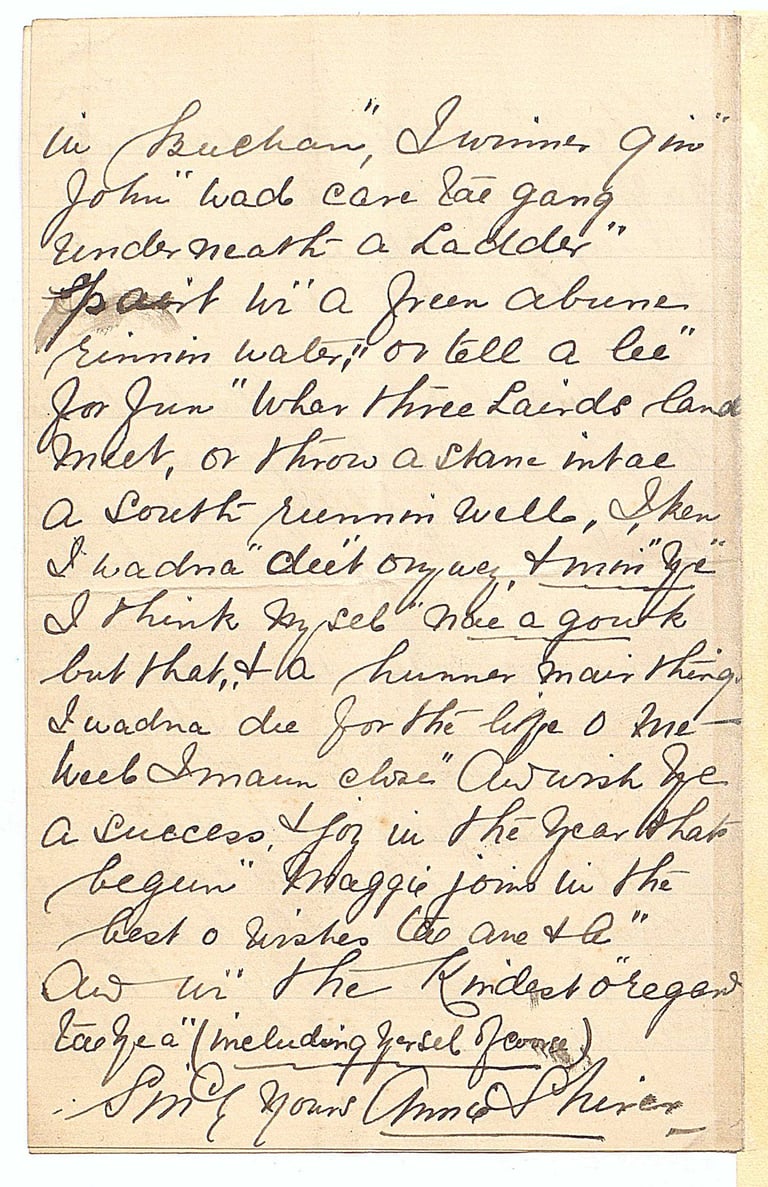 in Buchan", I winner gin"
John" wad care tae gang
underneath a Ladder""
Pairt wi" a freen abune
rinnin water," or tell a lee"
for fun "Whar three Lairds land
meet, or throw a stane intae
a South runnin well, I, ken
I wadna "dee't ony wey, & min" ye"
I think mysel "nae a gouk
but that, & a hunner mair thing
I wadna dee for the life o me—
Weel I maun close" Aw wish ye
a success, & joy in the year thats
begun" Maggie joins in the
best o wishes tae ane & A""
Aw wi" the Kindest o "regard
tae ye a" (including yersel of course)
Yours Shirer